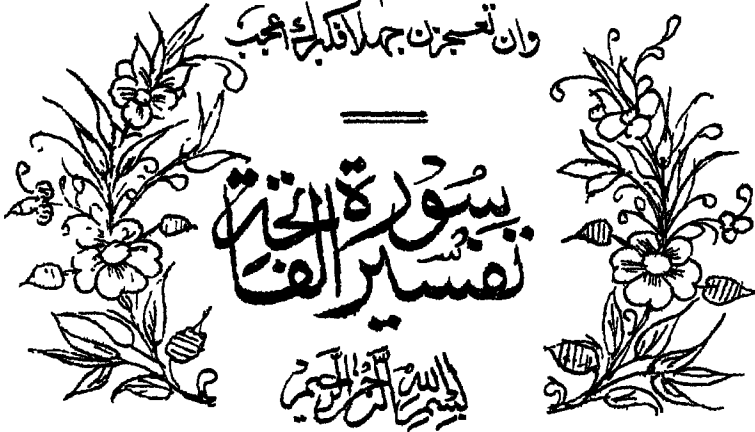 وان جهلا فكبرك أعجب
تفسير سورة الفاتحة
بسم الله الرحمن الرحيم